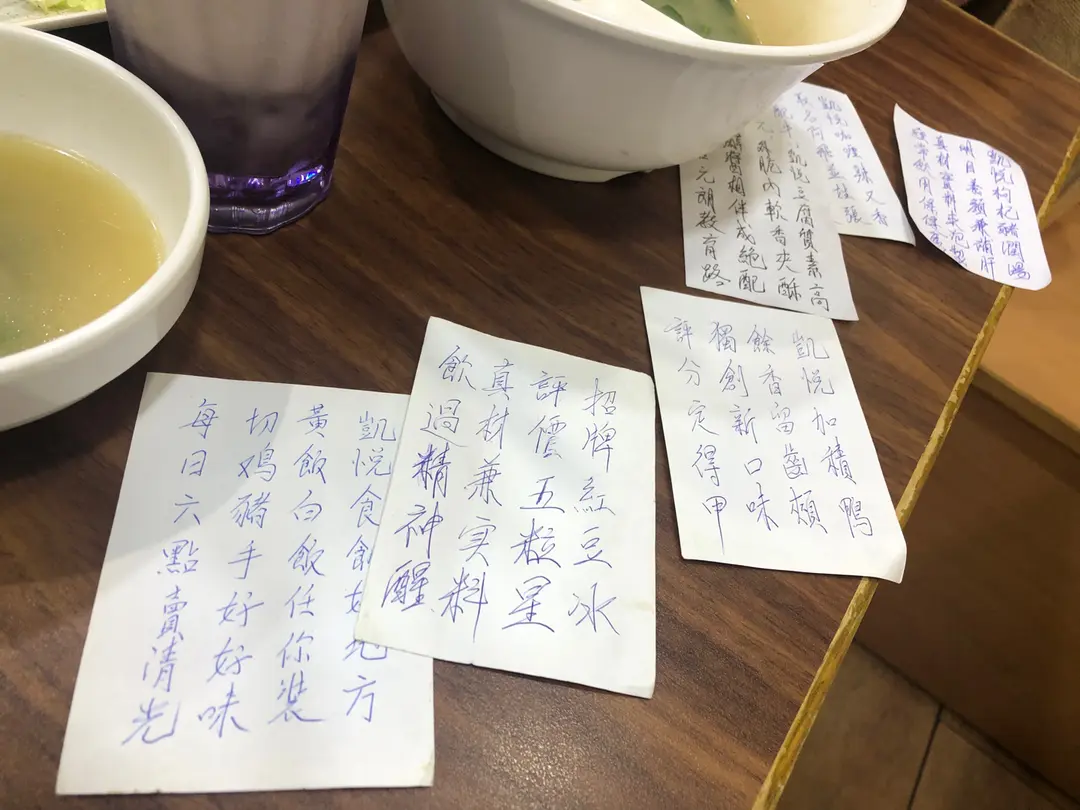 凱悅食館好地方
黃飯白飯任你裝
切鸡豬手好好味
每日六點賣清光
招牌紅豆冰
評價五粒星
真材兼实料
飲過精神醒
凱悅加積鴨
餘香留齒頰
獨創新口味
評分定得甲
凱悅豆腐質素高
脆內軟香夾酥
醬相伴成絕配
元朗教育路
凱悅咖喱辣又香
凱悅枸杞豬潤湯
明目養顏兼補肝
真材實料來泡製
經常飲用保健康